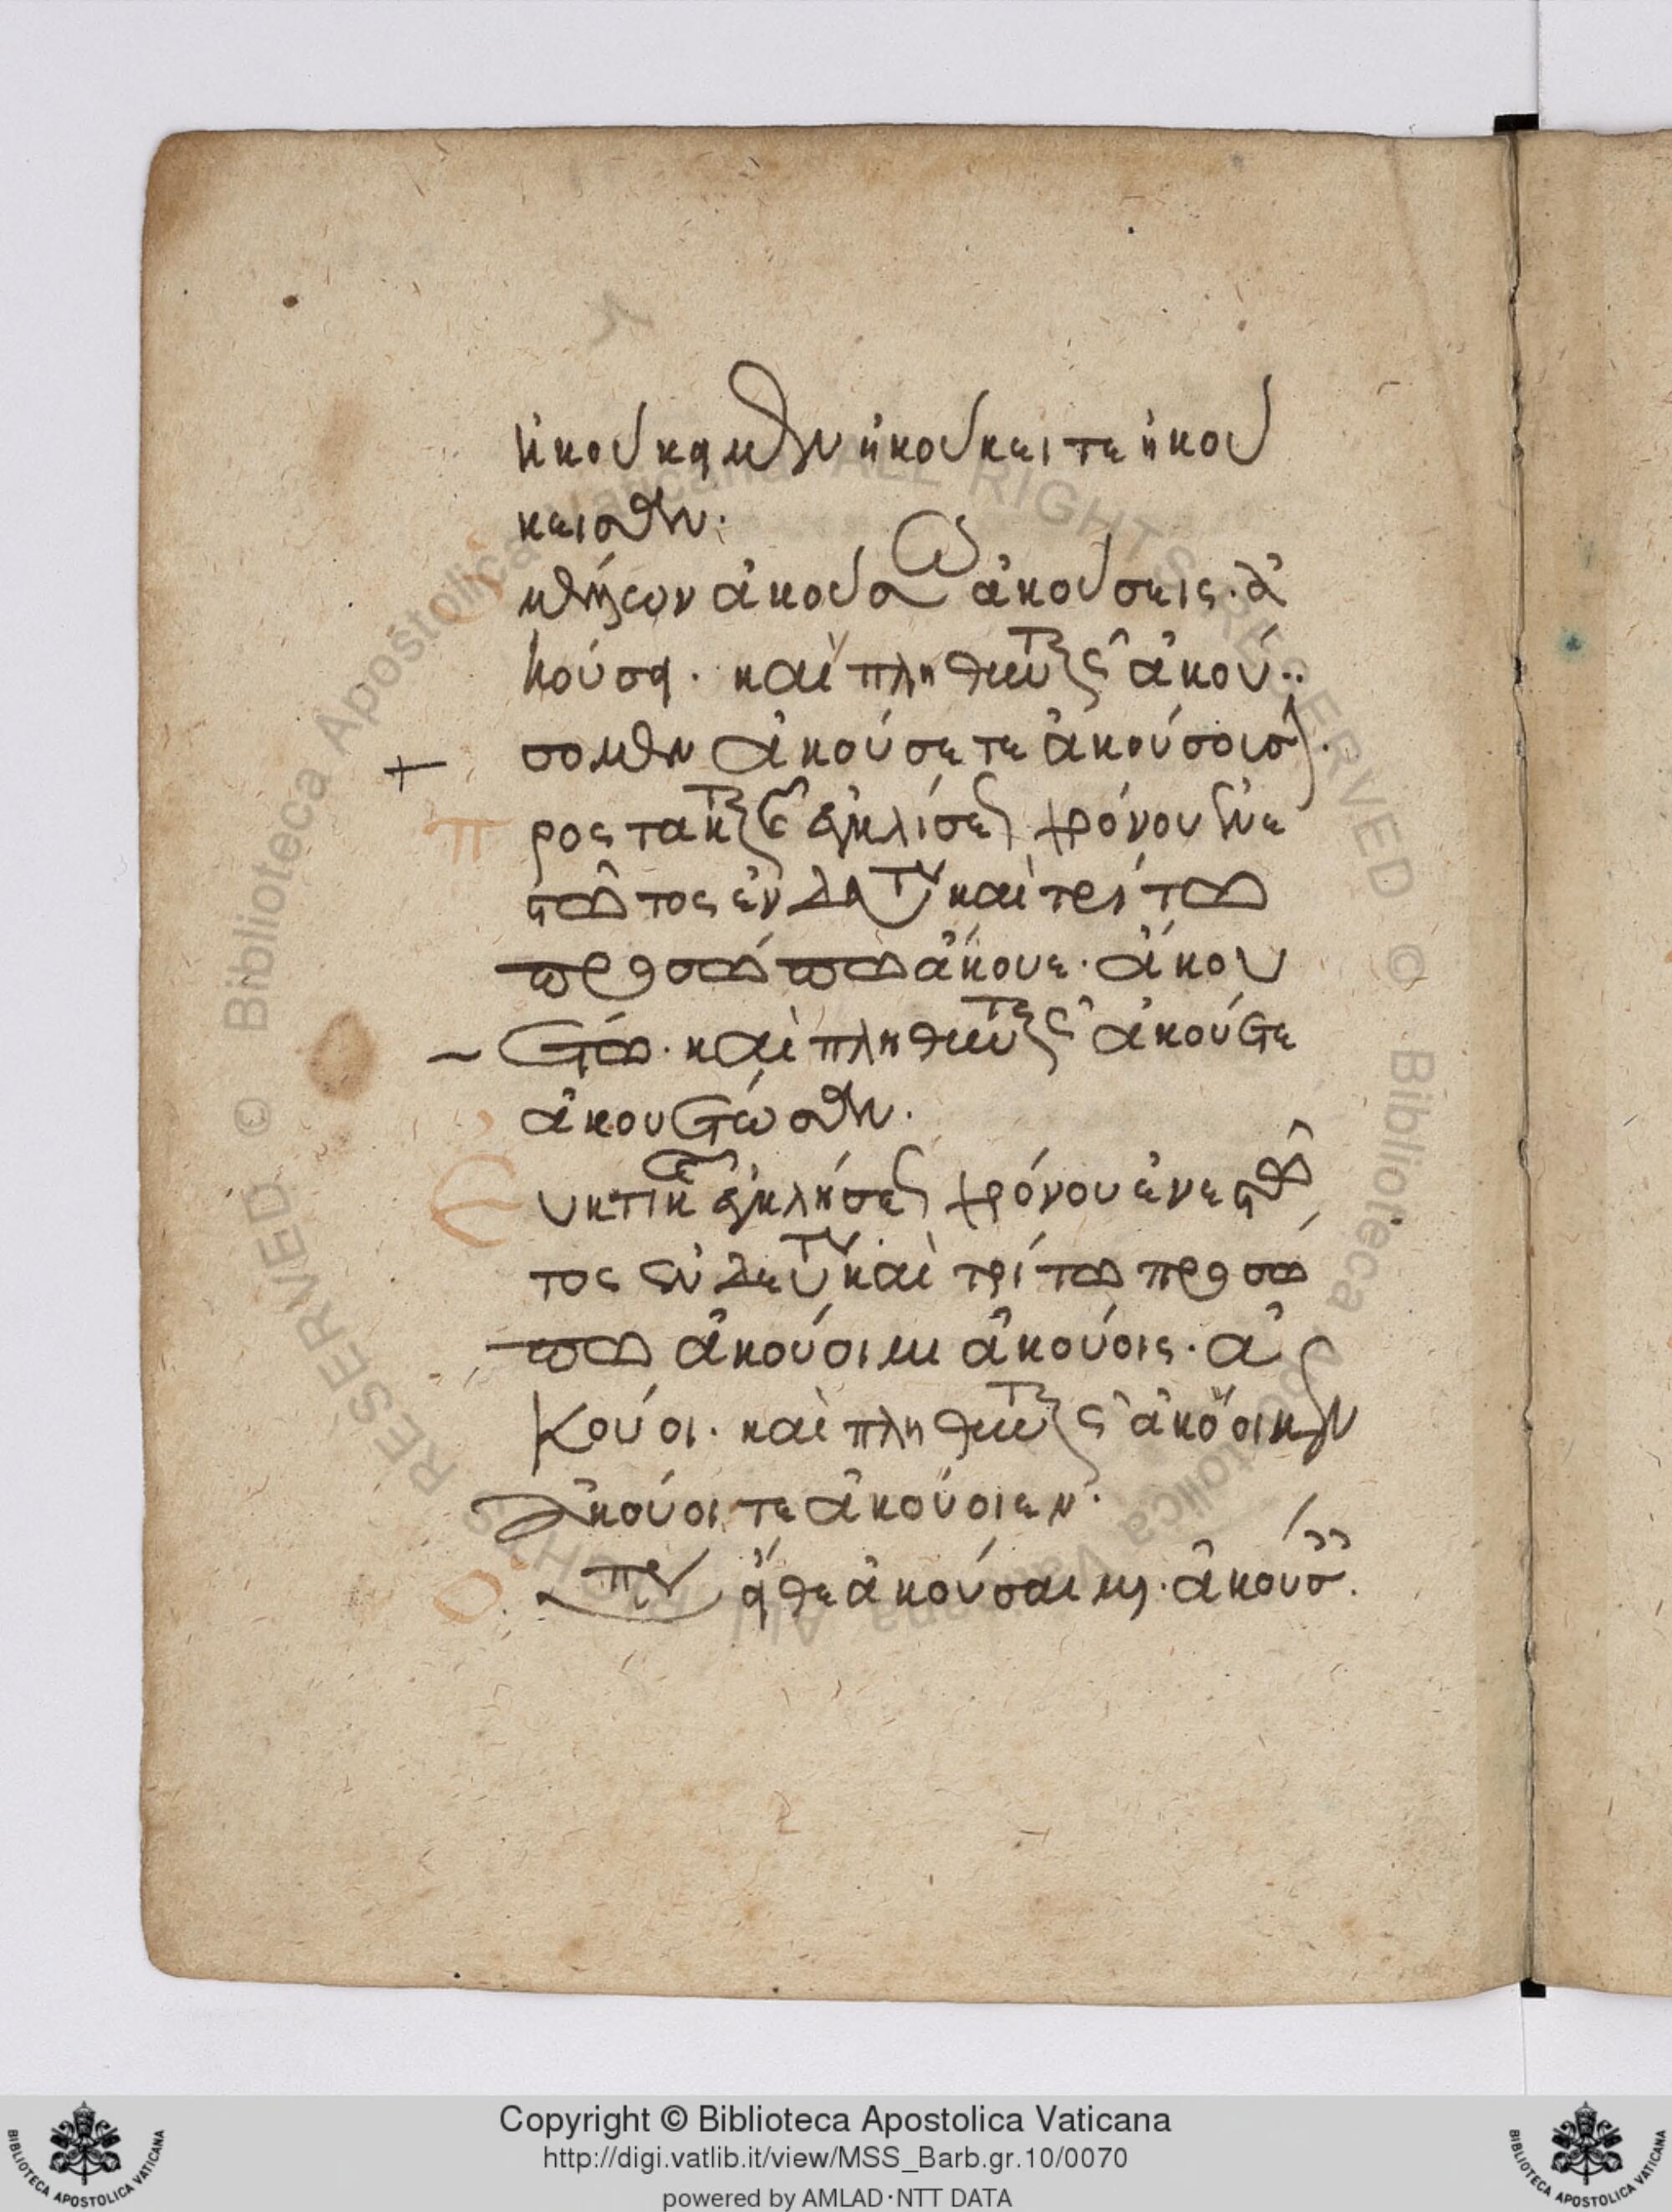 ἠκούκαμεν ἠκούκειτε ἠκού
κεισαν.
μέλλων ἀκούσω ἀκούσεις. ἀ
κούσει. καὶ πληθυντικῶς ἀκού
σομεν ἀκούσετε ἀκούσουσι.
προστακτικῆς ἐγκλίσεως χρόνου ἐνε
στῶτος ἐν δευτέρω καὶ τρίτω
προσώπω ἄκουε. ἀκου
έτω. καὶ πληθυντικῶς ἀκούετε
ἀκουέτωσαν.
Ευκτικῆς ἐγκλήσεως χρόνου ἐνεστῶ
τος ἐν δευτέρω καὶ τρίτω προσώ
πω ἀκούοιμι ἀκούοις. ἀ
κούοι. καὶ πληθυντικῶς ἀκούοιμεν
ἀκούοιτε ἀκούοιεν.
ἀκούσαιμι. ἀκούσ.
Copyright © Biblioteca Apostolica Vaticana
http://digi.vatlib.it/view/MSS_Barb.gr.10/0070
powered by AMLAD·NTT DATA
BIBLIOTECA APOSTOLICA VATICANA
BIBLIOTECA APOSTOLICA VATICANA
Biblioteca Apostolica Vaticana ALL RIGHTS RESERVED ©
Biblioteca Apostolica Vaticana ALL RIGHTS RESERVED ©